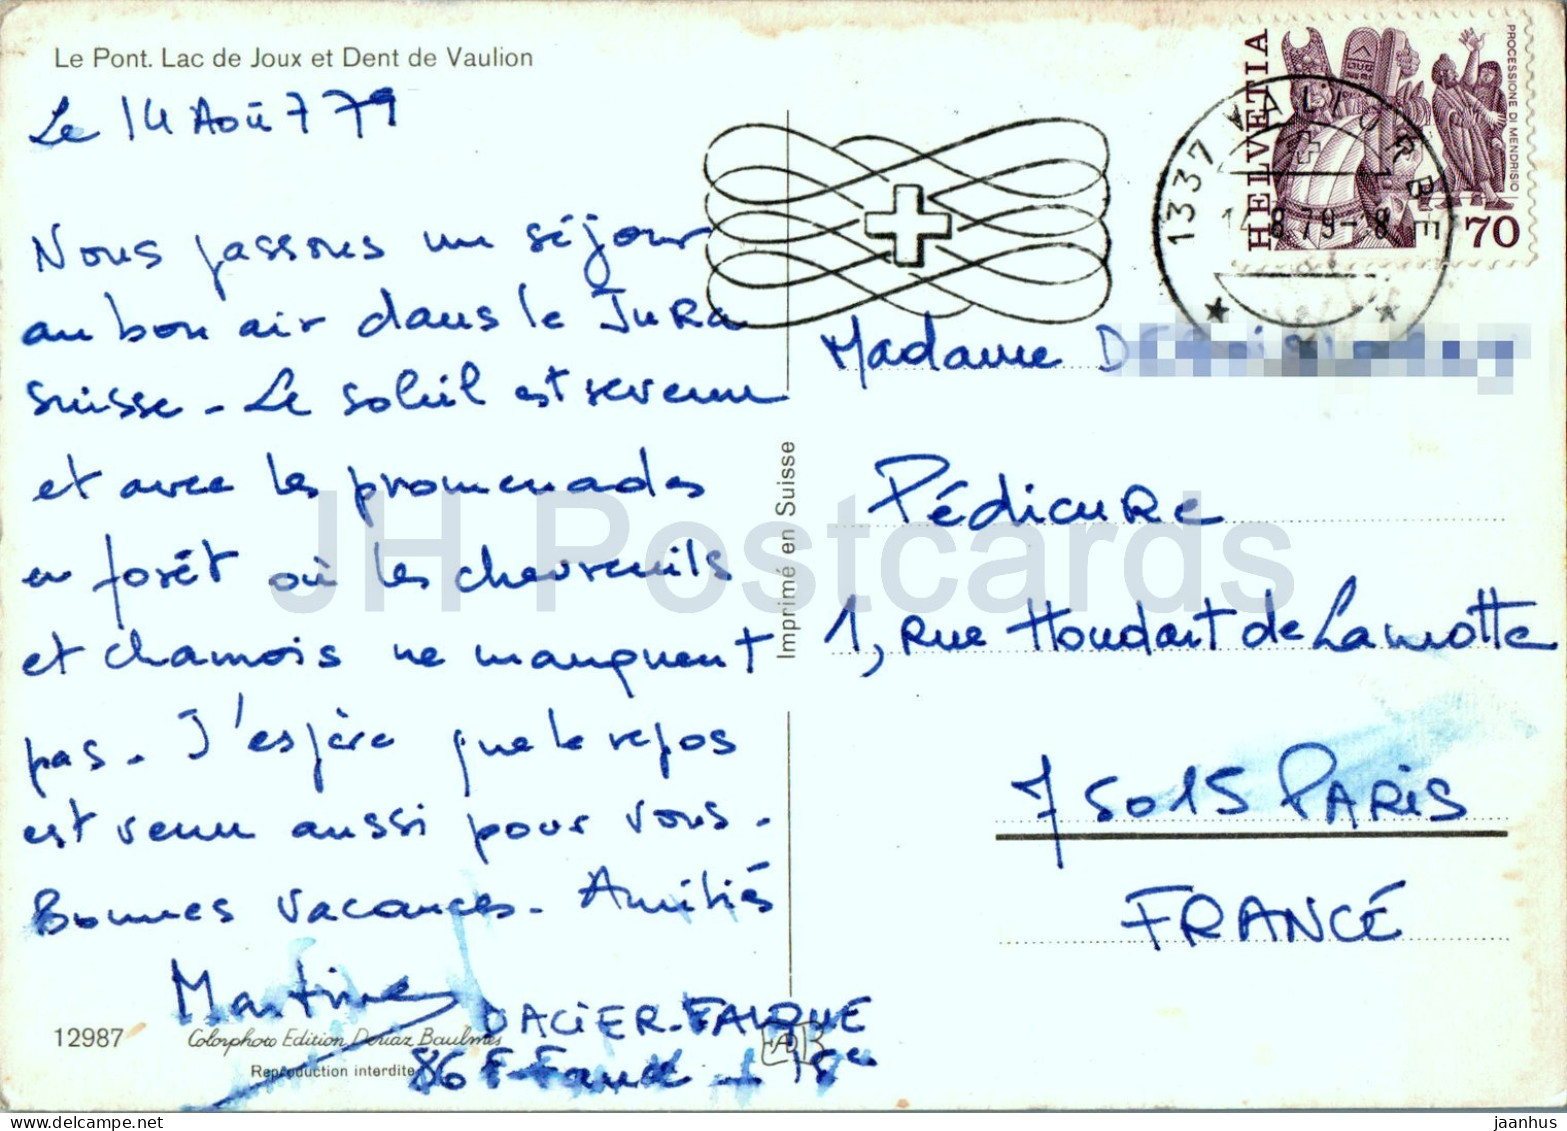 Le Pont. Lac de Joux et Dent de Vaulion
Le 14 Août 79
Nous passons un séjour
au bon air dans le Jura
suisse - Le soleil est revenu
et avec les promenades
en forêt où les chevreuils
et chamois ne manquent
pas - J'espère que le repos
est venu aussi pour vous.
Bonnes vacances - Amitiés
Martine
DACIER-FAUQUE
86 F-Faure - 15e
12987
Colorphoto Edition Deriaz Baulmes
Reproduction interdite
Imprimé en Suisse
HELVETIA
PROCESSIONE DI MENDRISIO
70
1337 VALLORBE
14.8.79-8
Madame
Pédicure
1, rue Houdart de Lamotte
75015 PARIS
FRANCE
JH Postcards
www.delcampe.net
jaanhus